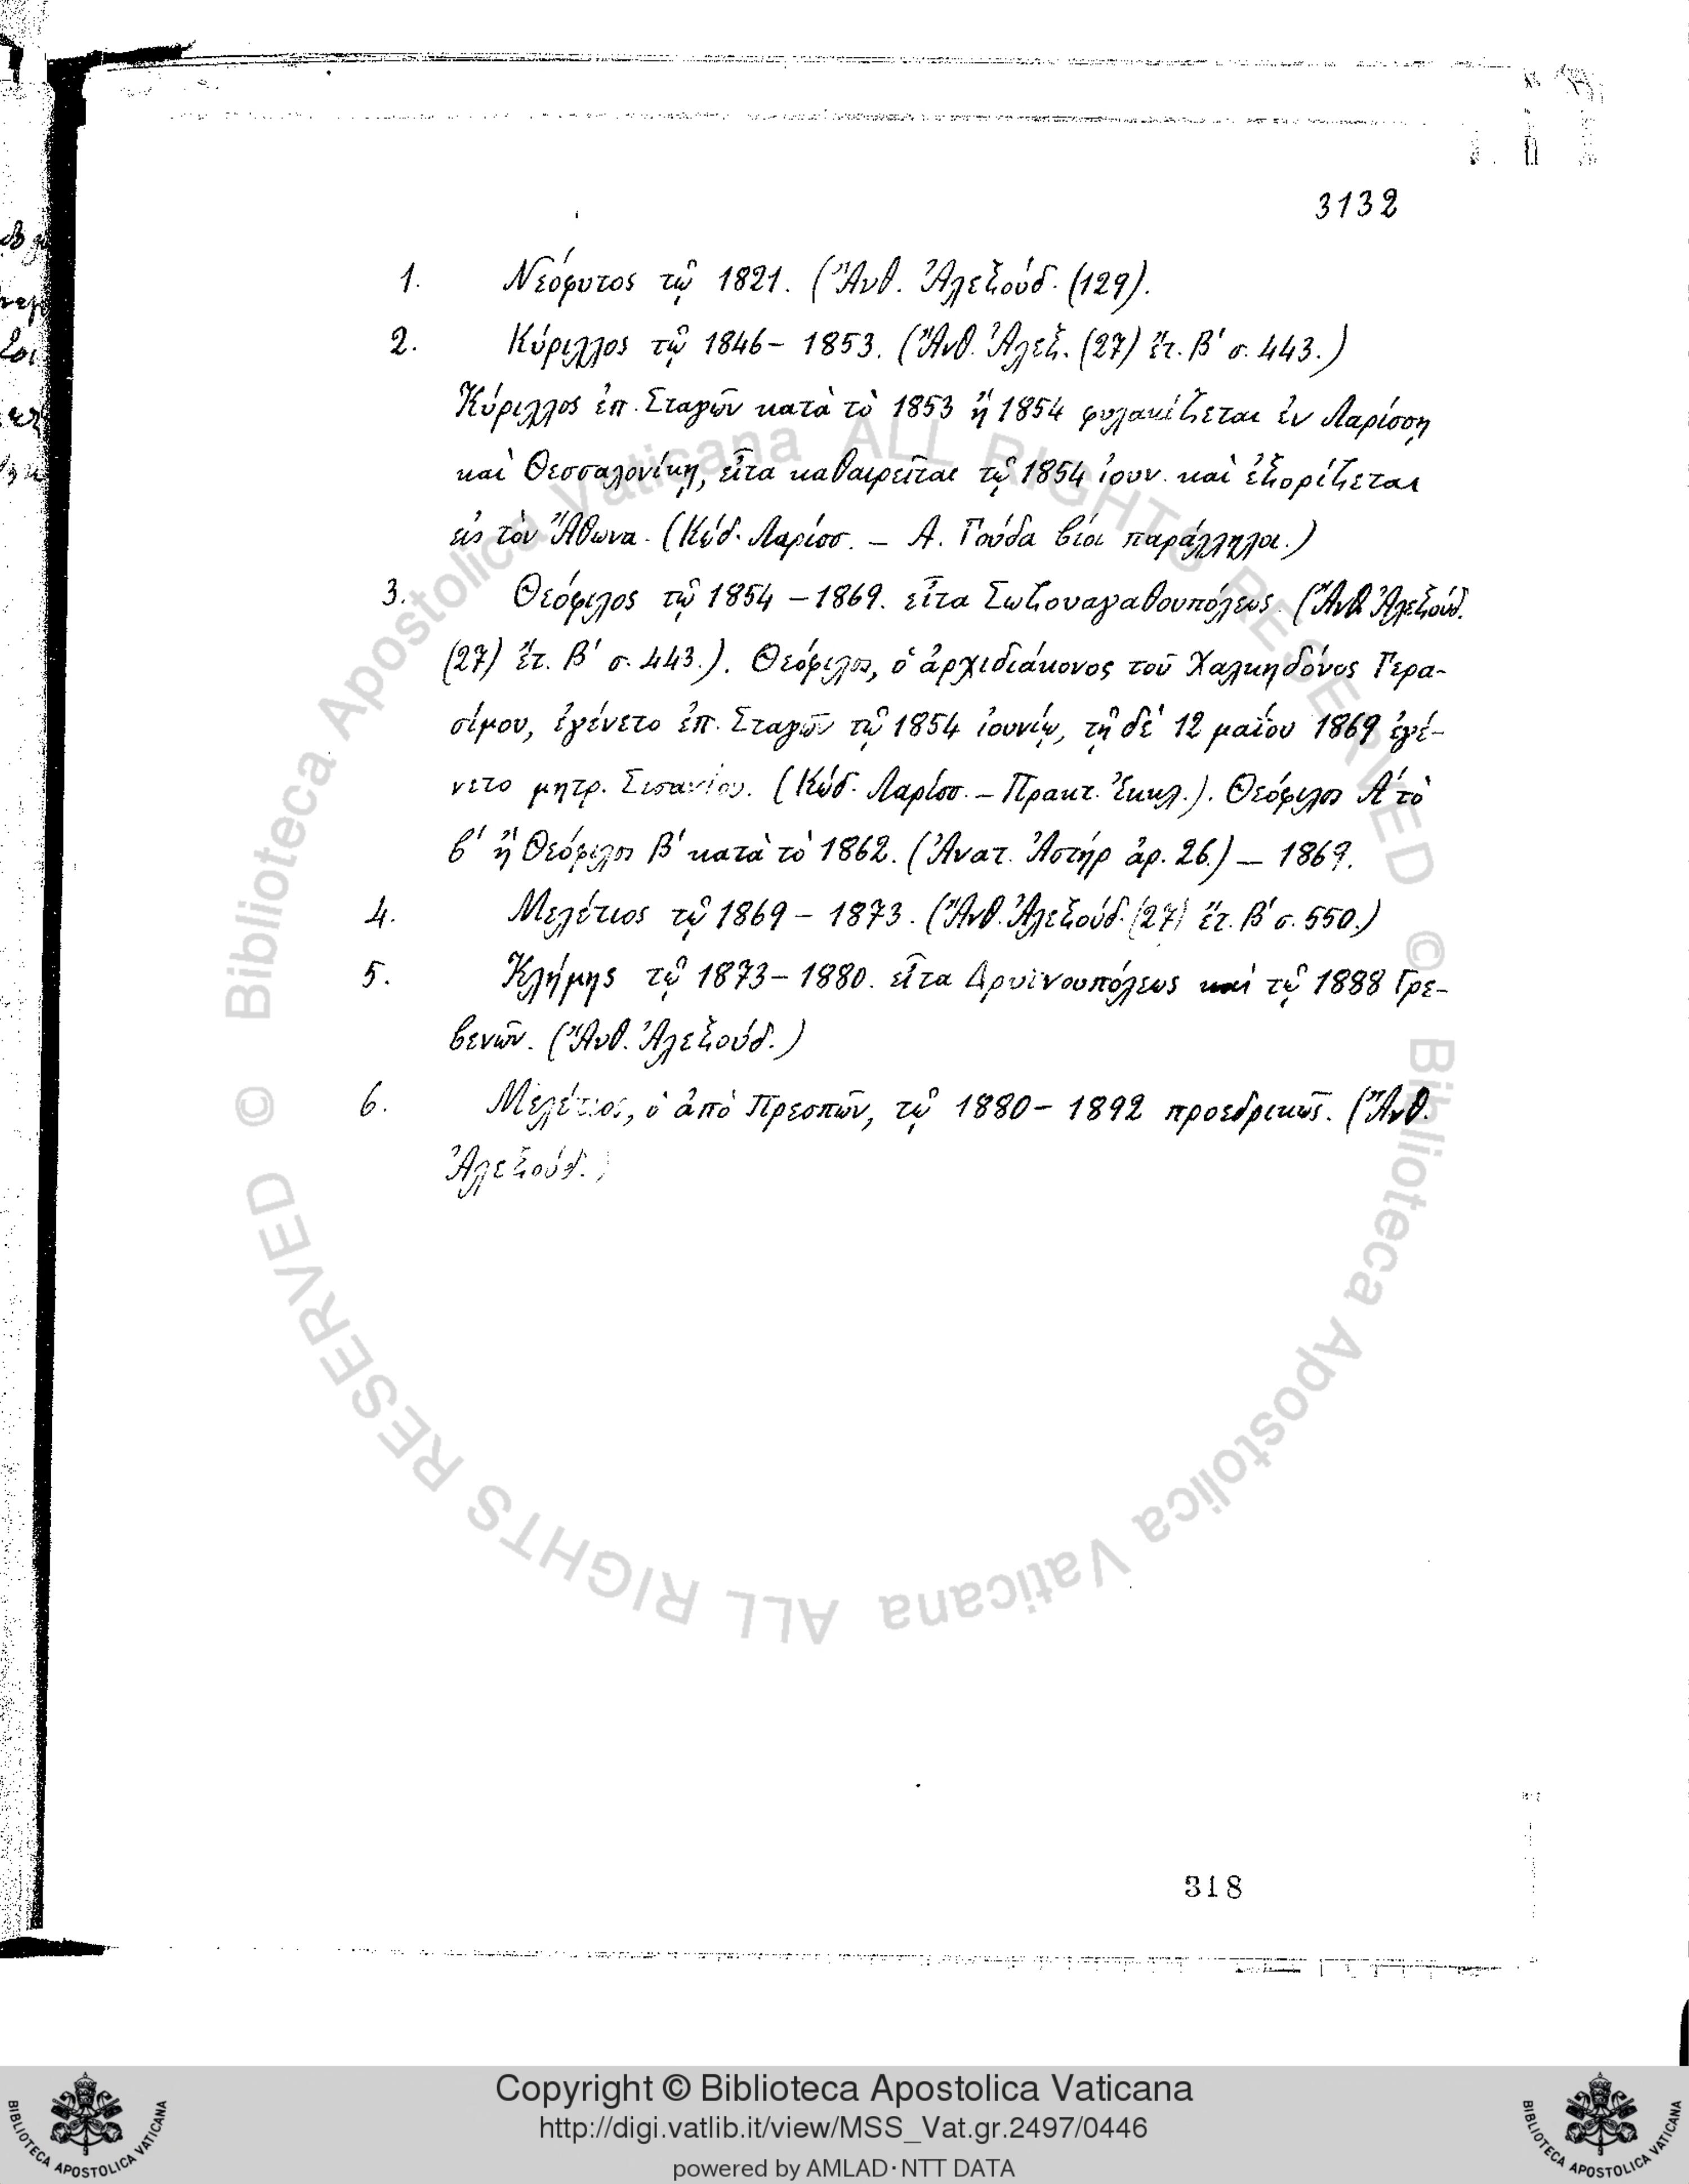 3132
1. Νεόφυτος τῷ 1821. (Ἄνθ. Ἀλεξούδ. (129).
2. Κύριλλος τῷ 1846 – 1853. (Ἄνθ. Ἀλεξ. (27) ἔτ. Β' σ. 443.)
Κύριλλος ἐπ. Σταγῶν κατὰ τὸ 1853 ἢ 1854 φυλακίζεται ἐν Λαρίσσῃ
καὶ Θεσσαλονίκῃ, εἶτα καθαιρεῖται τῷ 1854 ἰουν. καὶ ἐξορίζεται
εἰς τὸν Ἄθωνα. (Κώδ. Λαρίσσ. – Α. Γούδα βίοι παράλληλοι.)
3. Θεόφιλος τῷ 1854 – 1869. εἶτα Σωζουαγαθουπόλεως. (Ἄνθ. Ἀλεξούδ.
(27) ἔτ. Β' σ. 443.). Θεόφιλος, ὁ ἀρχιδιάκονος τοῦ Χαλκηδόνος Γερα-
σίμου, ἐγένετο ἐπ. Σταγῶν τῷ 1854 ἰουνίῳ, τῇ δὲ 12 μαΐου 1869 ἐγέ-
νετο μητρ. Σισανίου. (Κώδ. Λαρίσσ. – Πρακτ. Ἐκκλ.). Θεόφιλος Α' τὸ
β' ἢ Θεόφιλος Β' κατὰ τὸ 1862. (Ἀνατ. Ἀστὴρ ἀρ. 26.) – 1869.
4. Μελέτιος τῷ 1869 – 1873. (Ἄνθ. Ἀλεξούδ. (27) ἔτ. Β' σ. 550.)
5. Κλήμης τῷ 1873 – 1880. εἶτα Δρυϊνουπόλεως καὶ τῷ 1888 Γρε-
βενῶν. (Ἄνθ. Ἀλεξούδ.)
6. Μελέτιος, ὁ ἀπὸ Πρεσπῶν, τῷ 1880 – 1892 προεδρικῶς. (Ἄνθ.
Ἀλεξούδ.)
318
© Biblioteca Apostolica Vaticana ALL RIGHTS RESERVED
© Biblioteca Apostolica Vaticana ALL RIGHTS RESERVED
Copyright © Biblioteca Apostolica Vaticana
http://digi.vatlib.it/view/MSS_Vat.gr.2497/0446
powered by AMLAD·NTT DATA
BIBLIOTECA APOSTOLICA VATICANA
BIBLIOTECA APOSTOLICA VATICANA